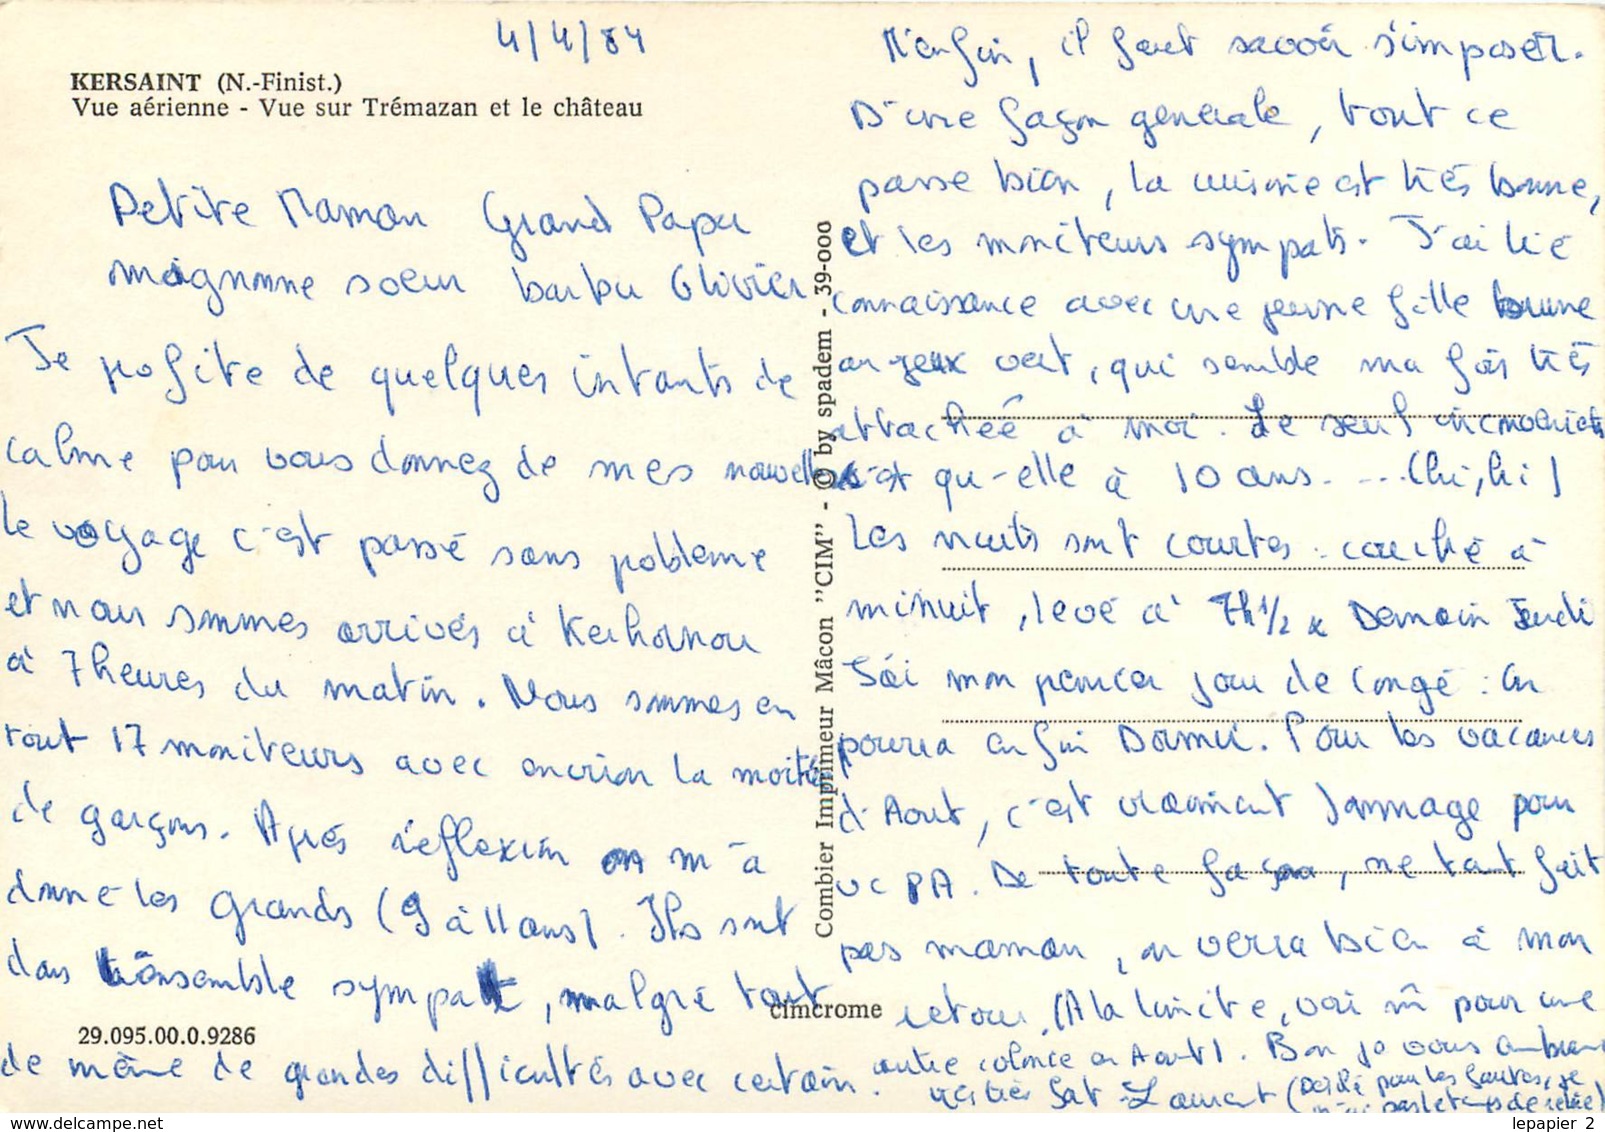 4/4/84
KERSAINT (N.-Finist.)
Vue aérienne - Vue sur Trémazan et le château
Petite Maman Grand Papa
mignonne soeur barbu Olivier
Je pofite de quelques intants de
calme pour vous donnez de mes nouvelles
le voyage c'est passé sans pobleme
et nous sommes arrivés à Kerhornou
à 7 heures du matin. Nous sommes en
tout 17 moniteurs avec environ la moitié
de garçons. Après réflexion on m'a
donné les grands (9 à 11 ans). Ils sont
dans l'ensemble sympat, malgré tout
de même de grandes difficultés avec certain.
29.095.00.0.9286
Combier Imprimeur Mâcon "CIM" - © by spadem - 39-000
cimcrome
M'enfin, il faut savoir s'imposer.
D'une façon generale, tout ce
passe bien, la cuisine est très bonne,
et les moniteurs sympats. J'ai lié
connaissance avec une jeune fille brune
au yeux vert, qui semble ma fois très
attachée à moi. Le seul inconvient
c'est qu'elle à 10 ans. ...(hi, hi)
Les nuits sont courtes : couché à
minuit, levé à 7h 1/2 Demain Jeudi
sai mon premier jour de congé : on
pourra enfin Dormir. Pour les vacances
d'Aout, c'est vraiment dommage pour
UCPA. De toute façon, ne tant fait
pas maman, on verra bien à mon
retour. (A la limite, voi m̂ pour une
autre colonie en Aout). Bon je vous embrasse
très très fort Laurent (Desolé pour les fautes, je
n'ai pas le temps de relire)
lepapier_2